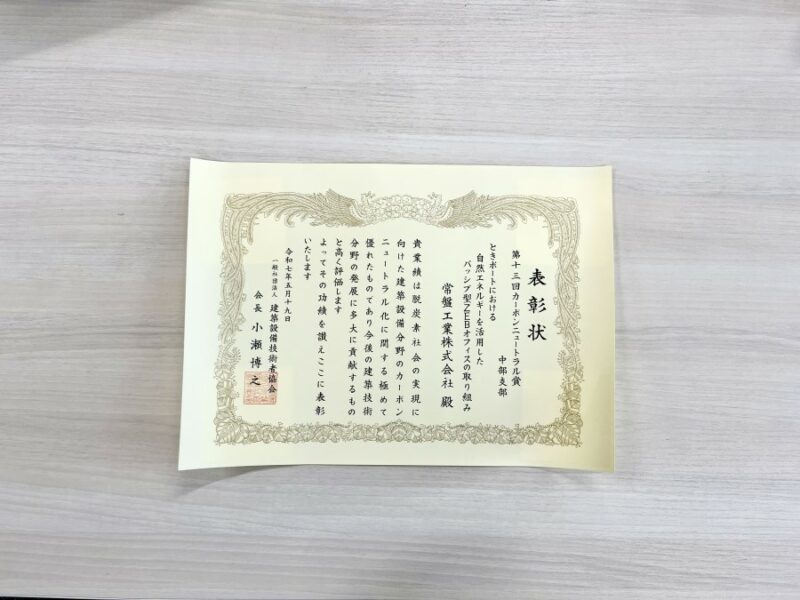 表彰状
第十三回カーボンニュートラル賞
中部支部
ときポートにおける
自然エネルギーを活用した
パッシブ型ZEBオフィスの取り組み
常盤工業株式会社 殿
貴業績は脱炭素社会の実現に
向けた建築設備分野のカーボン
ニュートラル化に関する極めて
優れたものであり今後の建築技術
分野の発展に多大に貢献するもの
と高く評価します
よってその功績を讃えここに表彰
いたします
令和七年五月十九日
一般社団法人 建築設備技術者協会
会長 小瀬博之